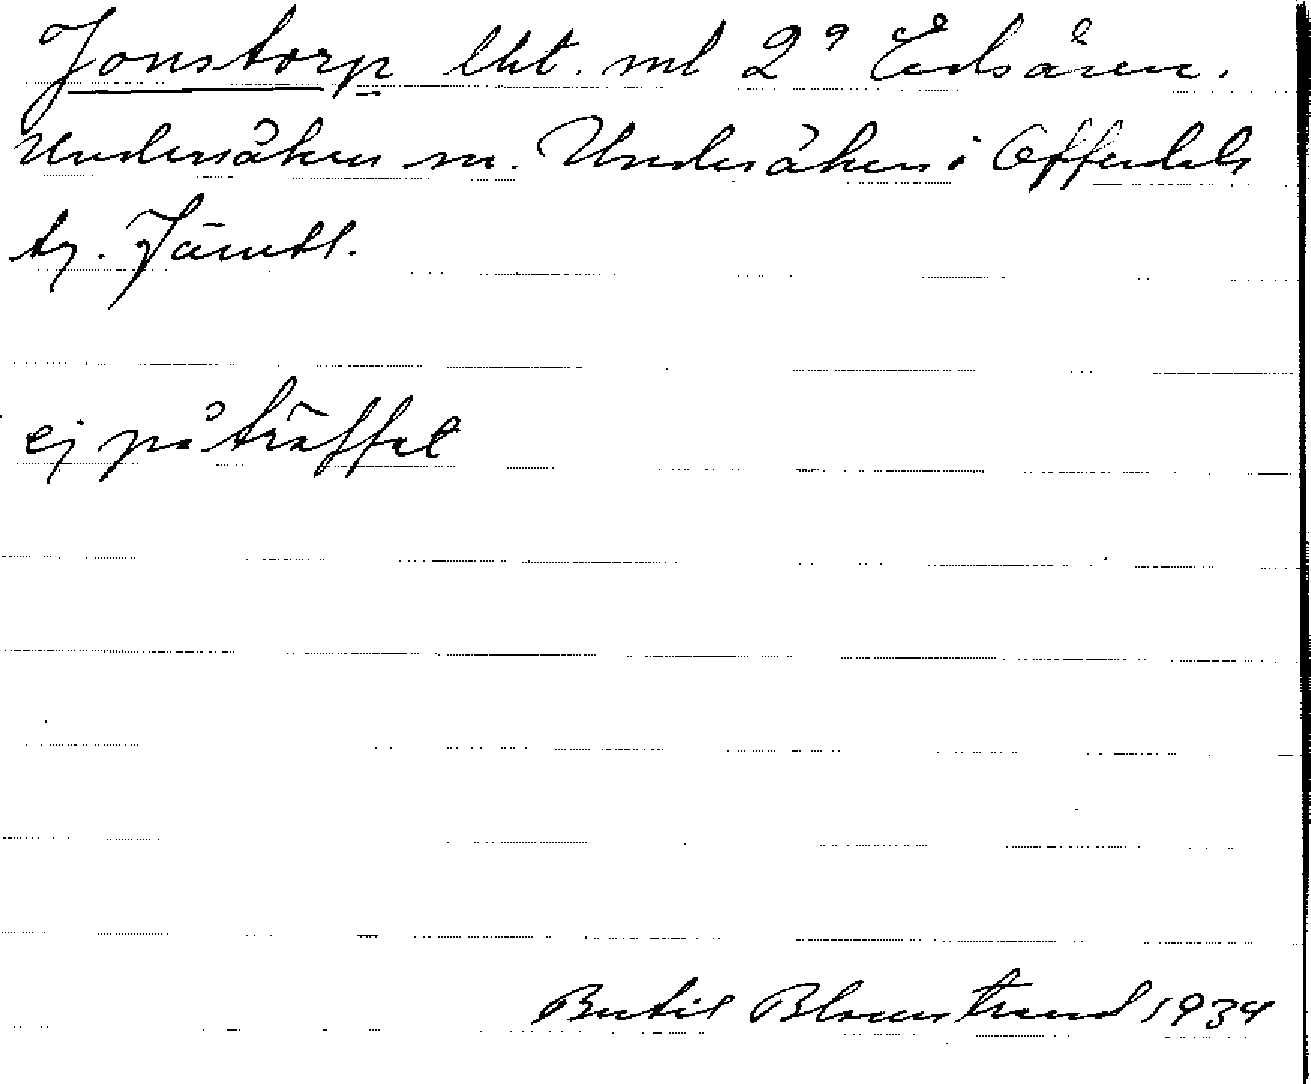 Jonstorp lht. ml 2⁹ Edsåsen.
Undersåkers sn. Undersåkers i Offerdals
tg. Jämtl.
ej påträffat
Bertil Blomstrand 1934